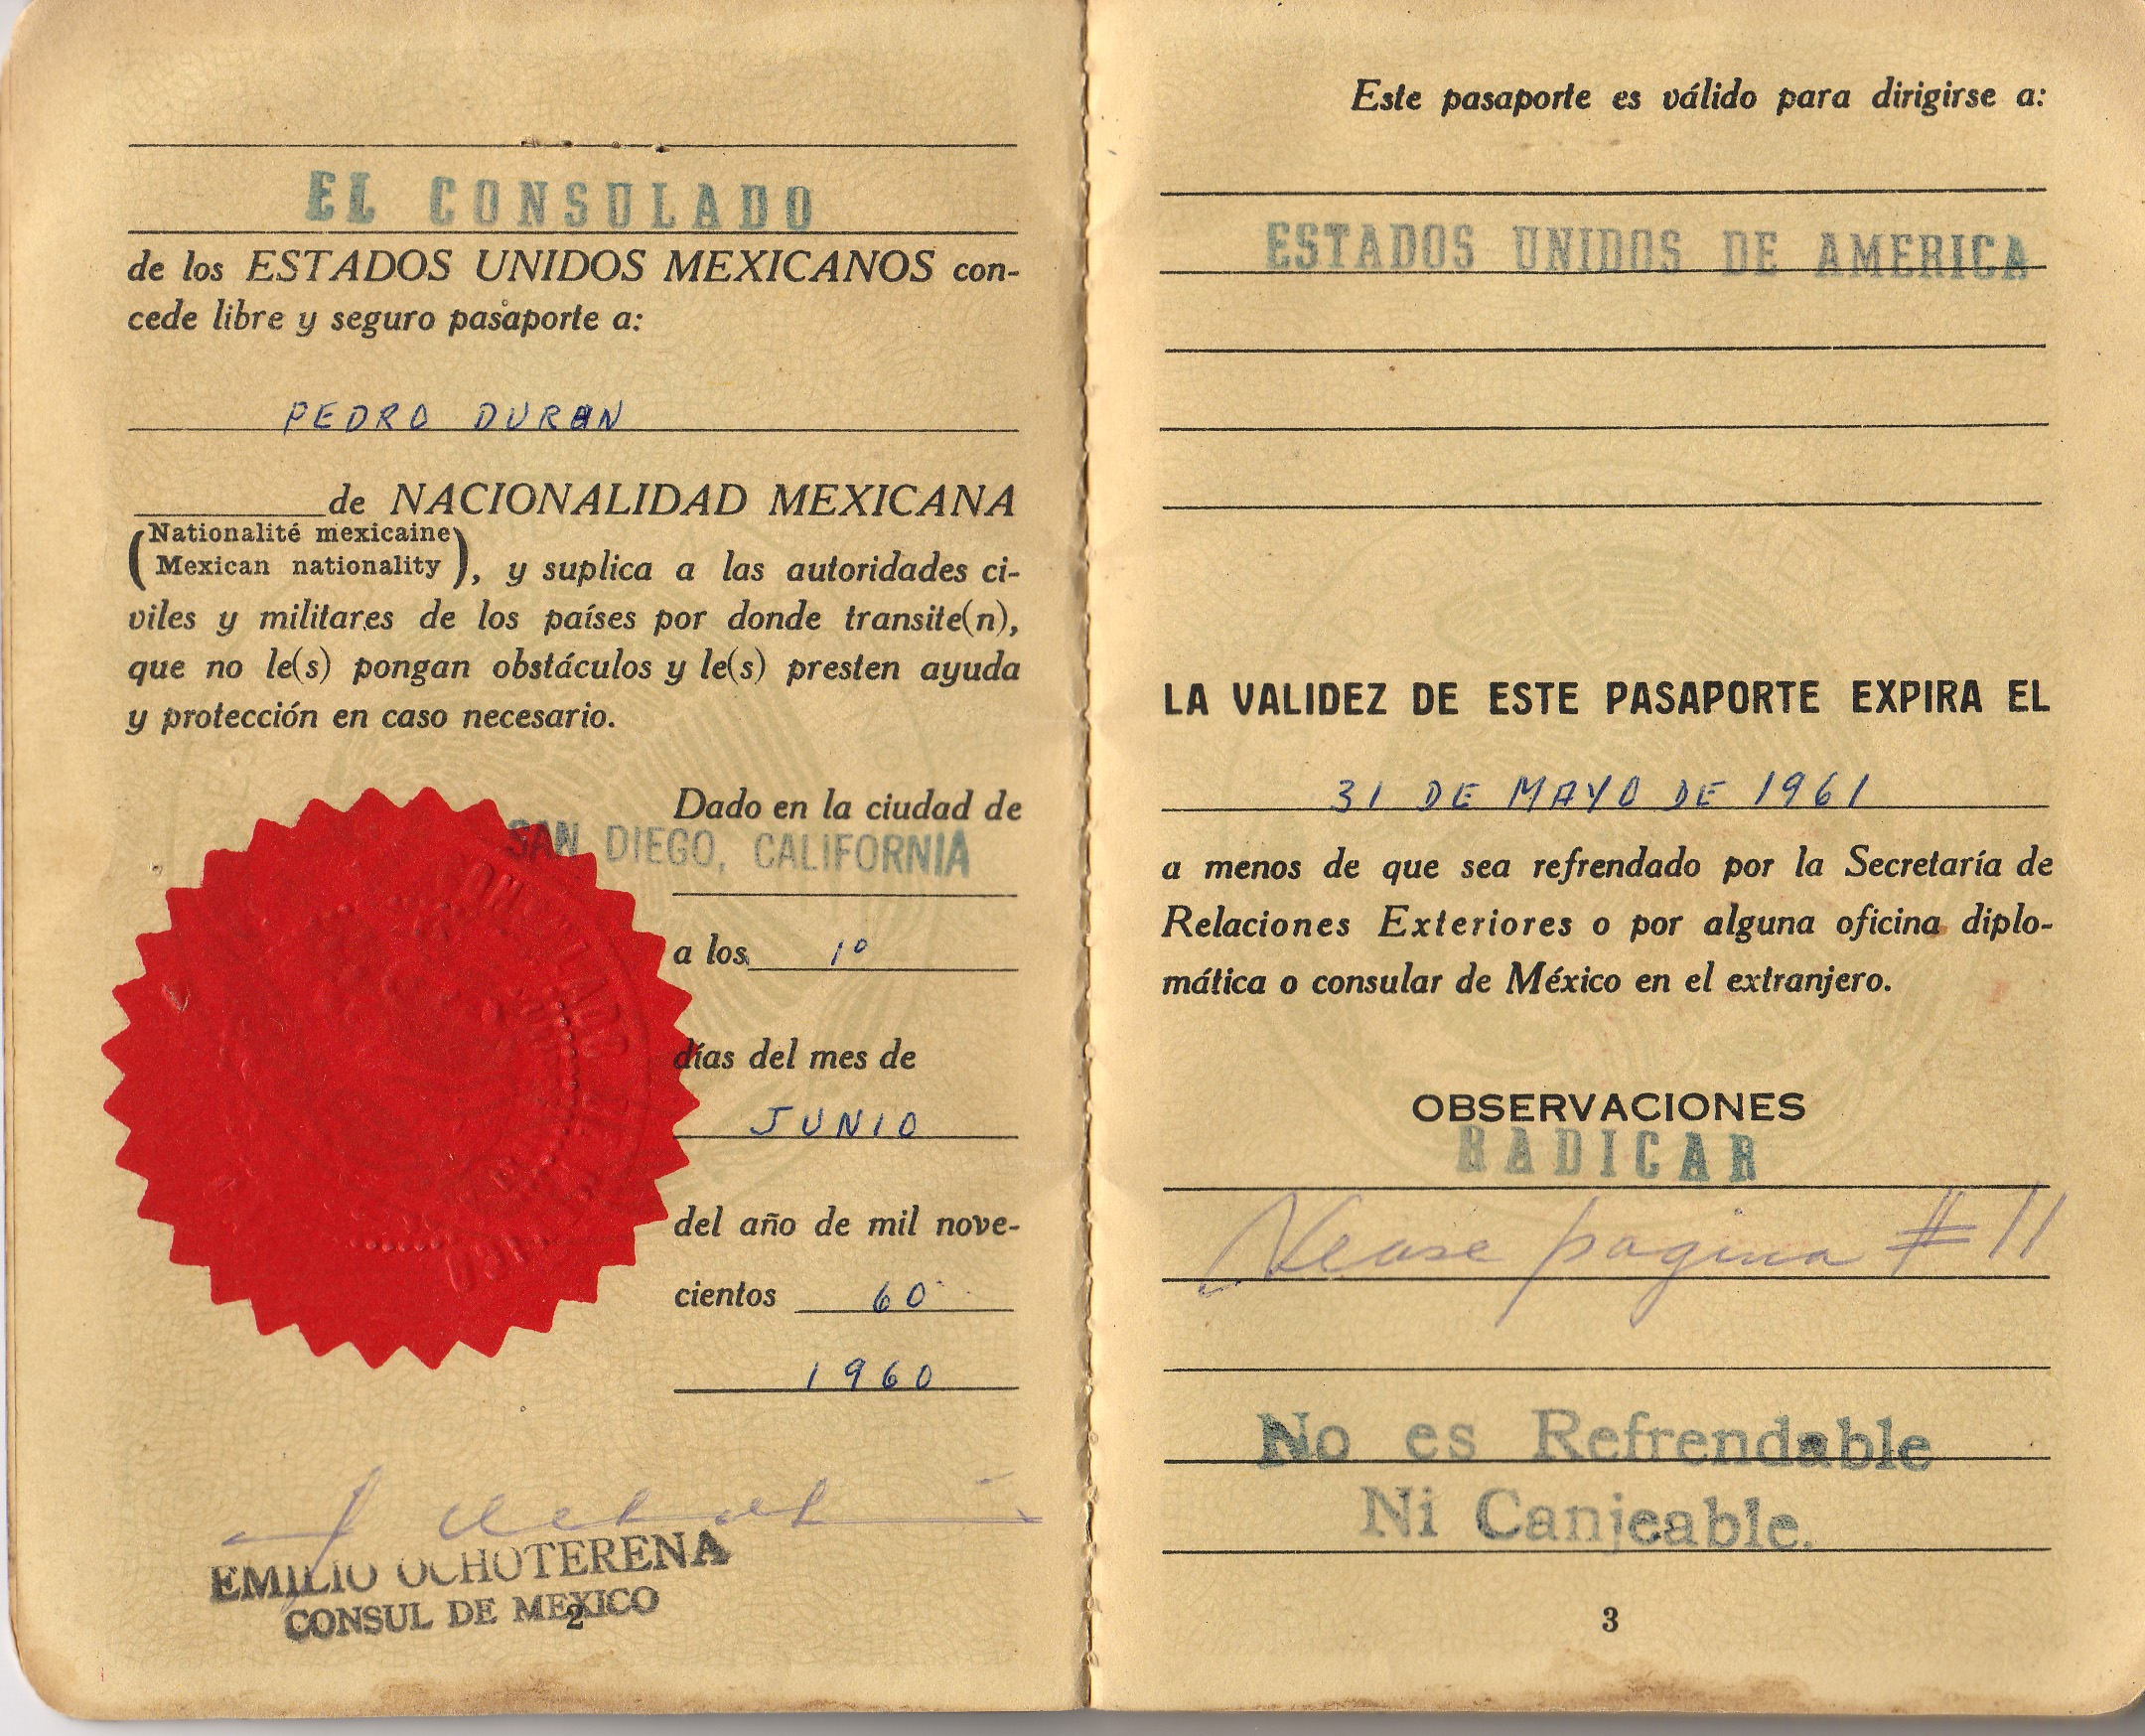 EL CONSULADO
de los ESTADOS UNIDOS MEXICANOS con-
cede libre y seguro pasaporte a:
PEDRO DURAN
de NACIONALIDAD MEXICANA
(Nationalité mexicaine
Mexican nationality), y suplica a las autoridades ci-
viles y militares de los países por donde transite(n),
que no le(s) pongan obstáculos y le(s) presten ayuda
y protección en caso necesario.
Dado en la ciudad de
SAN DIEGO, CALIFORNIA
a los 1º
días del mes de
JUNIO
del año de mil nove-
cientos 60
1960
EMILIO OCHOTERENA
CONSUL DE MEXICO
2
Este pasaporte es válido para dirigirse a:
ESTADOS UNIDOS DE AMERICA
LA VALIDEZ DE ESTE PASAPORTE EXPIRA EL
31 DE MAYO DE 1961
a menos de que sea refrendado por la Secretaría de
Relaciones Exteriores o por alguna oficina diplo-
mática o consular de México en el extranjero.
OBSERVACIONES
RADICAR
Vease pagina # 11
No es Refrendable
Ni Canjeable.
3